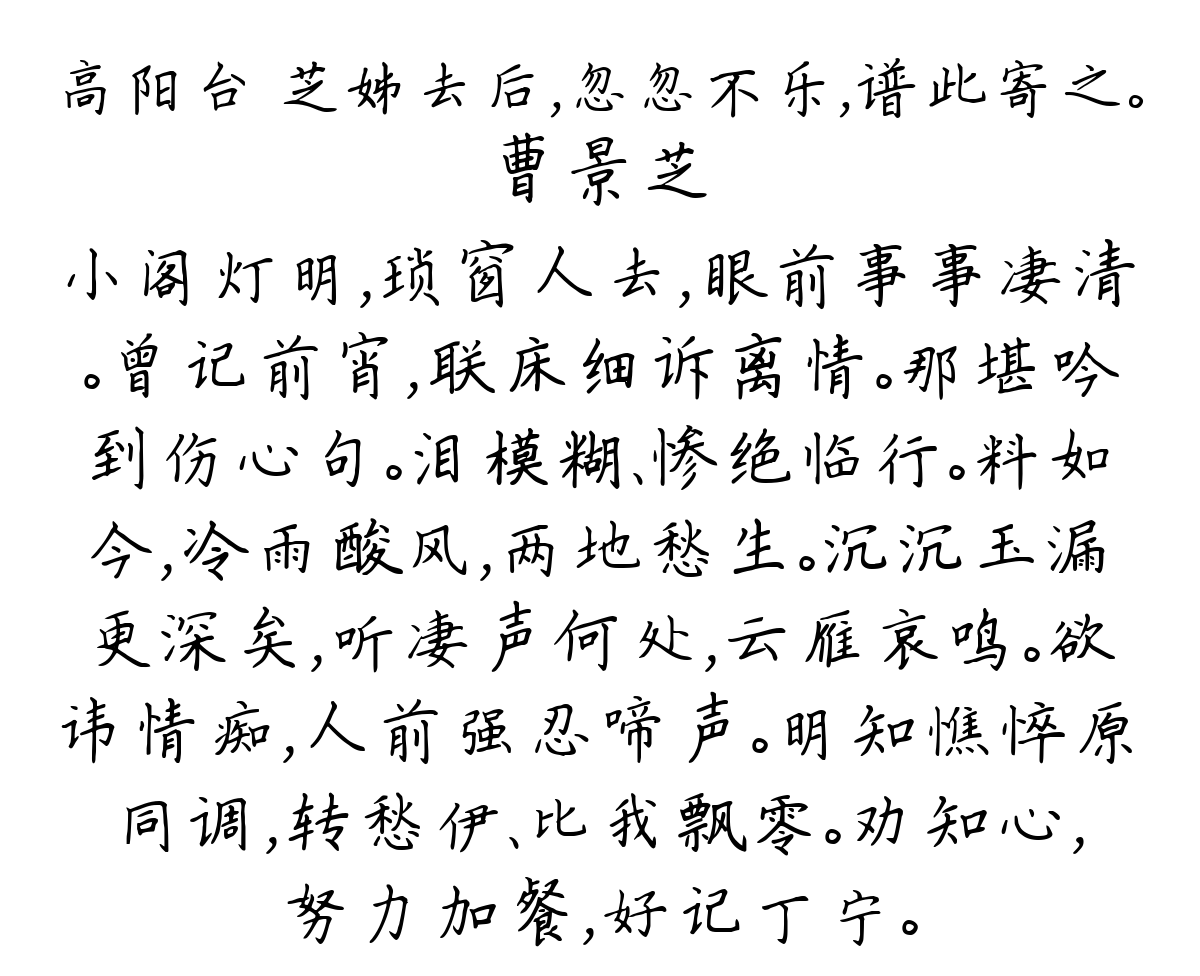 高阳台 芝姊去后,忽忽不乐,谱此寄之。
曹景芝
小阁灯明,琐窗人去,眼前事事凄清
。曾记前宵,联床细诉离情。那堪吟
到伤心句。泪模糊、惨绝临行。料如
今,冷雨酸风,两地愁生。沉沉玉漏
更深矣,听凄声何处,云雁哀鸣。欲
讳情痴,人前强忍啼声。明知憔悴原
同调,转愁伊、比我飘零。劝知心,
努力加餐,好记丁宁。